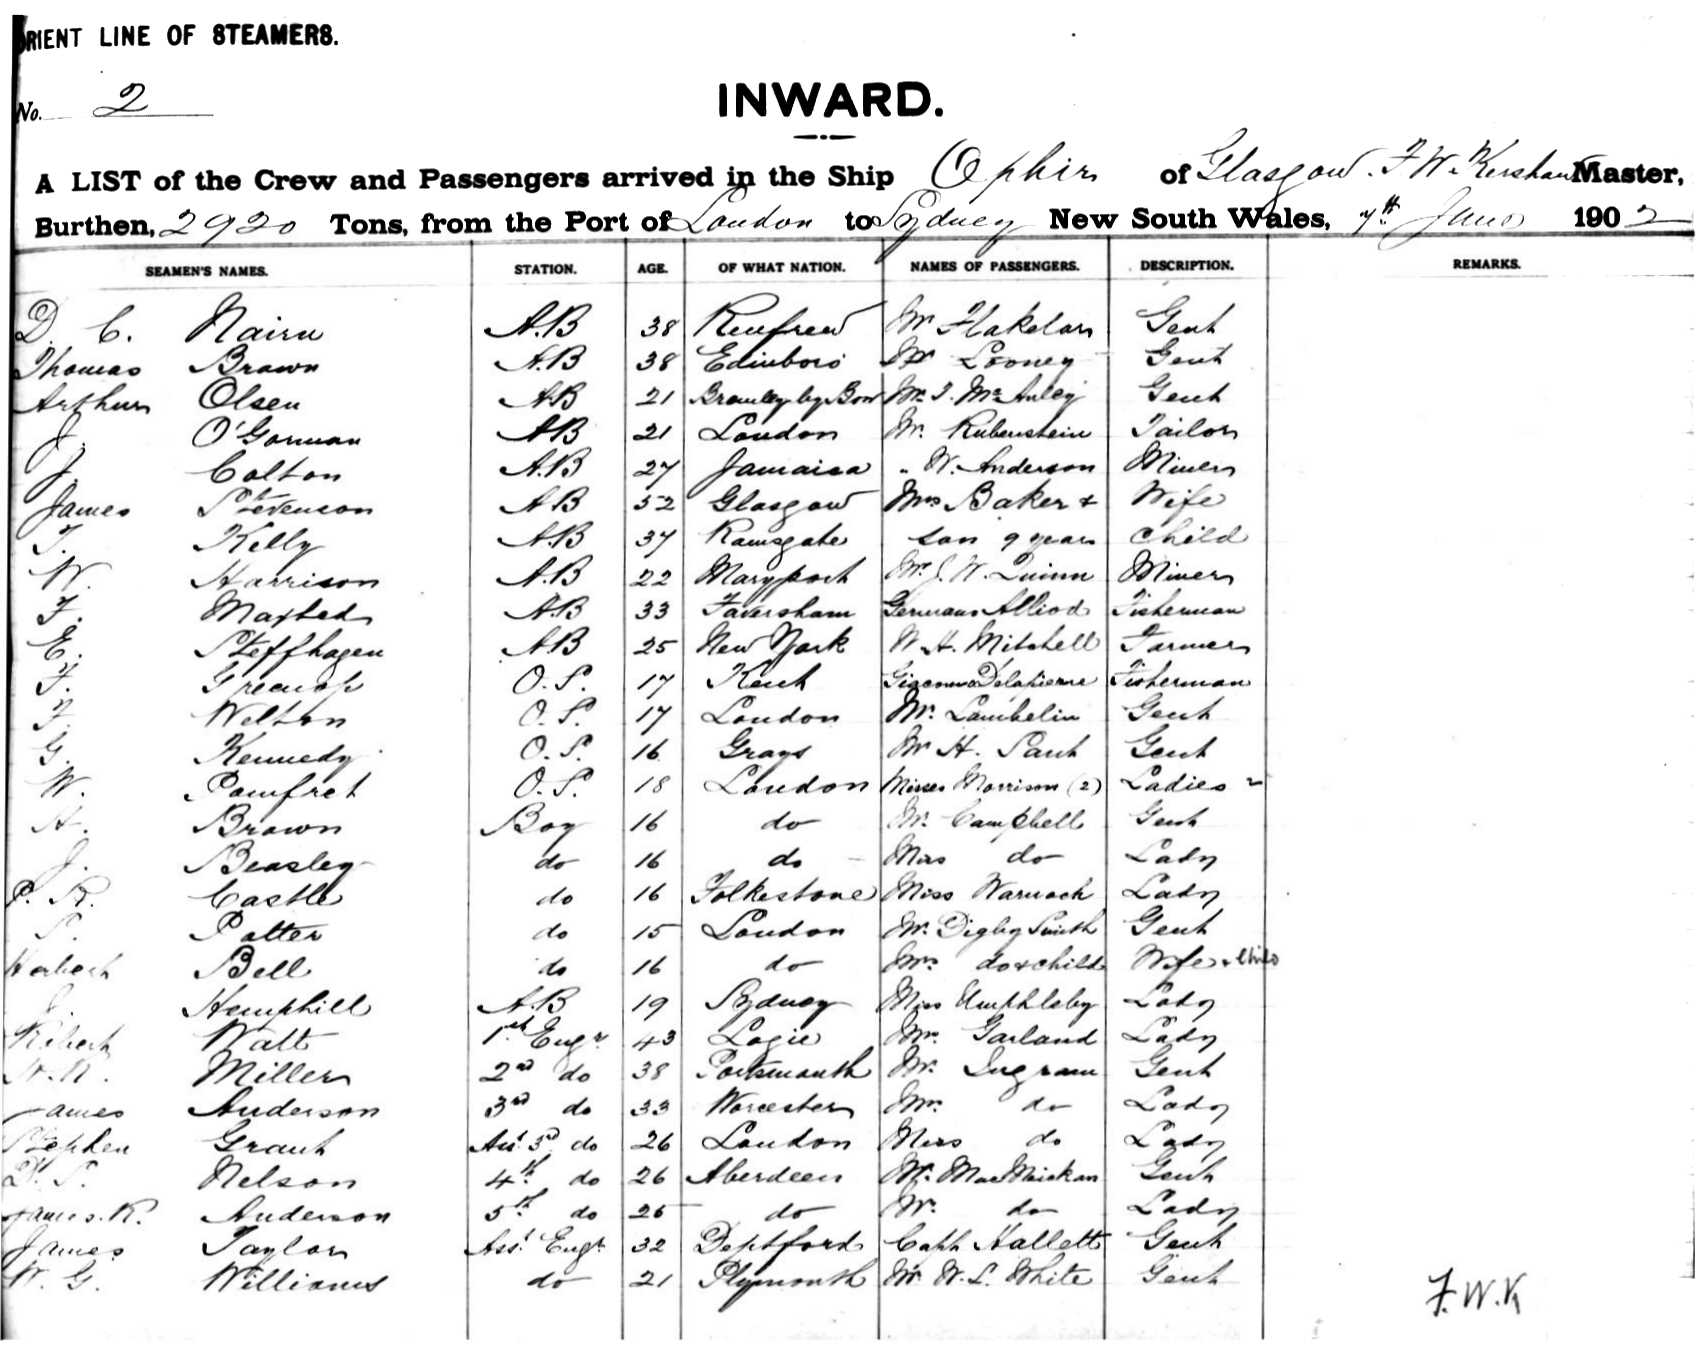 ORIENT LINE OF STEAMERS.
No. 2
INWARD.
A LIST of the Crew and Passengers arrived in the Ship Ophir of Glasgow. F. W. Kershaw Master,
Burthen, 2920 Tons, from the Port of London to Sydney New South Wales, 7th Jany 1902
SEAMEN'S NAMES. STATION. AGE. OF WHAT NATION. NAMES OF PASSENGERS. DESCRIPTION. REMARKS.
D. C. Nairn A.B 38 Renfrew Mr Flakelar Gent
Thomas Brown A.B 38 Edinboro Mr Looney Gent
Arthur Olsen AB 21 Bromley by Bow Mr. J. Mc Auley Gent
J. O'Gorman AB 21 London Mr. Rubenstein Tailor
J. Colton A.B 27 Jamaica " W. Anderson Miner
James Stevenson AB 52 Glasgow Mrs Baker + Wife
T. Kelly A.B 37 Ramsgate son 9 years child
W. Harrison A.B 22 Maryport Mr. J. W. Quinn Miner
F. Maxted A.B 33 Faversham Germano Alliod Fisherman
E. Steffhagen AB 25 New York W. H. Mitchell Farmer
F. Greenop O.S. 17 Kent Giacomo Delapierre Fisherman
F. Welton O.S. 17 London Mr. Lambelin Gent
G. Kennedy O.S. 16 Grays Mr H. Gent
W. Pomfret O.S. 18 London Misses Morrison (2) Ladies 2
A. Brown Boy 16 do Mr. Campbell Gent
J. Beasley do 16 do Miss do Lady
P. R. Castle do 16 Folkestone Miss Warnock Lady
S. Potter do 15 London Mr. Digby Smith Gent
Herbert Bell do 16 do Mrs do + child Wife + Child
J. Hemphill A.B 19 Sydney Miss Umphleby Lady
Robert Watt 1st Engr 43 Logie Mrs Garland Lady
Miller 2nd do 38 Portsmouth Mr. Ingram Gent
James Anderson 3rd do 33 Worcester Mrs. do Lady
Stephen Grant Ast. 3rd do 26 London Miss do Lady
D. S. Nelson 4th do 26 Aberdeen Mr. MacMickan Gent
James. R. Anderson 5th do 25 do do Lady
James Taylor Asst. Engr 32 Deptford Capt Hallett Gent
W. G. Williams do 21 Plymouth Mr. W. L. White Gent
F.W.K